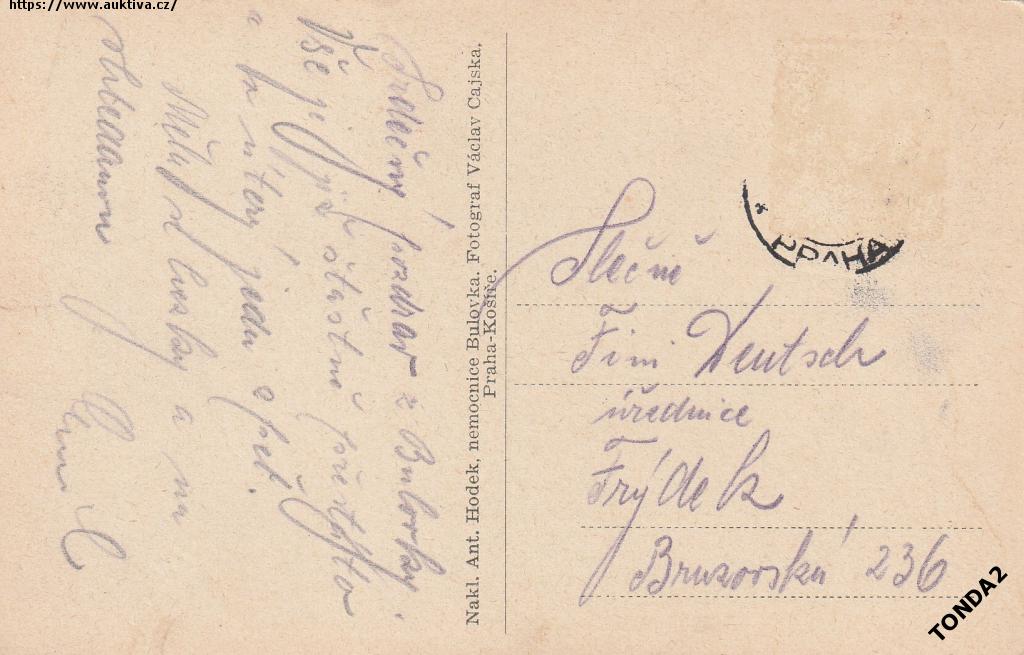 https://www.auktiva.cz/
Srdečný pozdrav z Bulovky.
Vše již šťastně přestáto
a v úterý jedu zpět.
Měj se hezky a na
shledanou
Nakl. Ant. Hodek, nemocnice Bulovka. Fotograf Václav Cajska,
Praha-Košíře.
PRAHA
Slečně
Fini Deutsch
úřednice
Frýdek
Bruzovská, 236
TONDA2